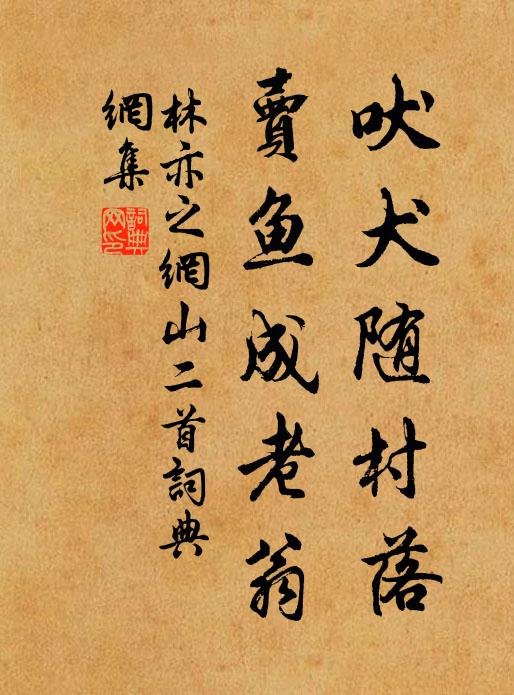 吠犬随村落
賣鱼成老翁
林亦之網山二首詞典
網集
詞典網印